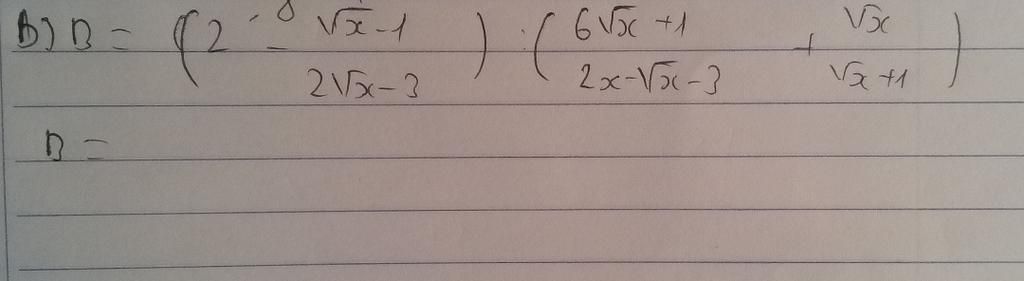 b) B = (2 - \frac{√x-1}{2√x-3}) : (\frac{6√x+1}{2x-√x-3} + \frac{√x}{√x+1})
B =